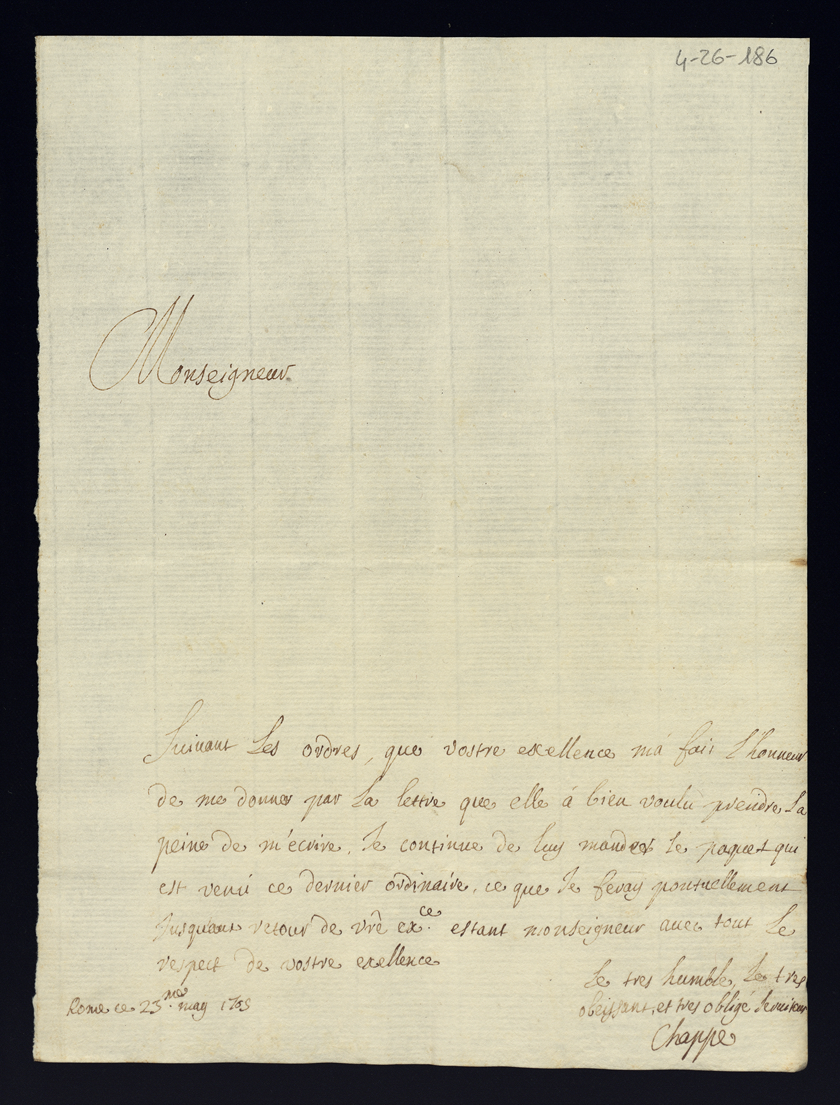 4-26-186
Monseigneur
Suivant les ordres, que vostre exellence m'a fait l'honneur
de me donner par la lettre que elle à bien voulu prendre la
peine de m'écrire, Je continue de luy mander le paquet qui
est venu ce dernier ordinaire, ce que Je feray pontuellement
Jusquau retour de vrê ex.ce estant monseigneur avec tout le
respect de vostre exellence
Le tres humble, Le tres
obeissant, et tres obligé serviteur
Chappe
Rome ce 23.me may